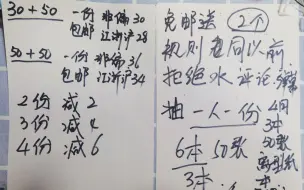 30+50
一份 非偏30
包邮 江浙沪28
50+50
一份 非偏36
包邮 江浙沪34
2份 减2
3份 减4
4份 减6
免邮送 2个
规则 同以前
拒绝水评论
抽一人一份
6本 50张
3本